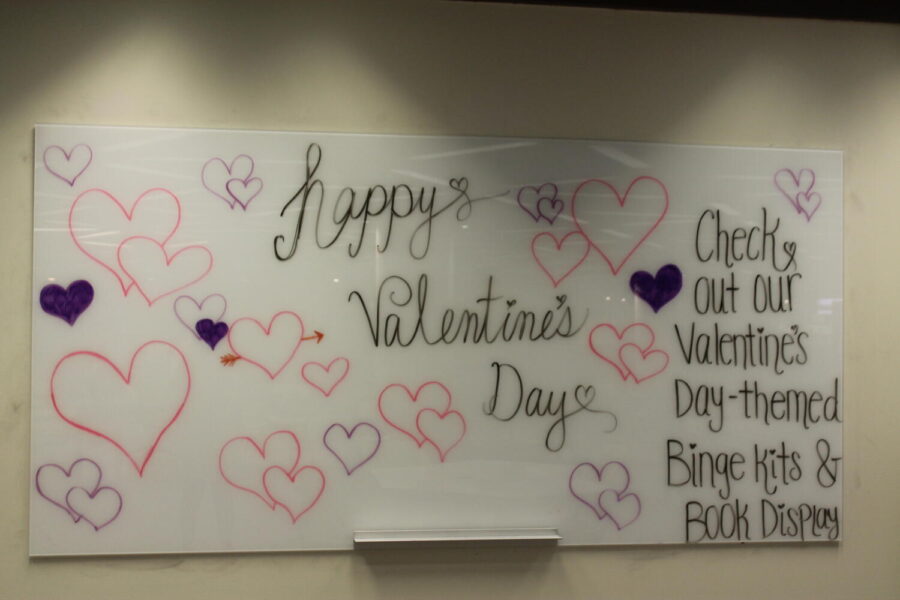 Happy
Valentine's
Day
Check
out our
Valentine's
Day-themed
Binge Kits &
Book Display